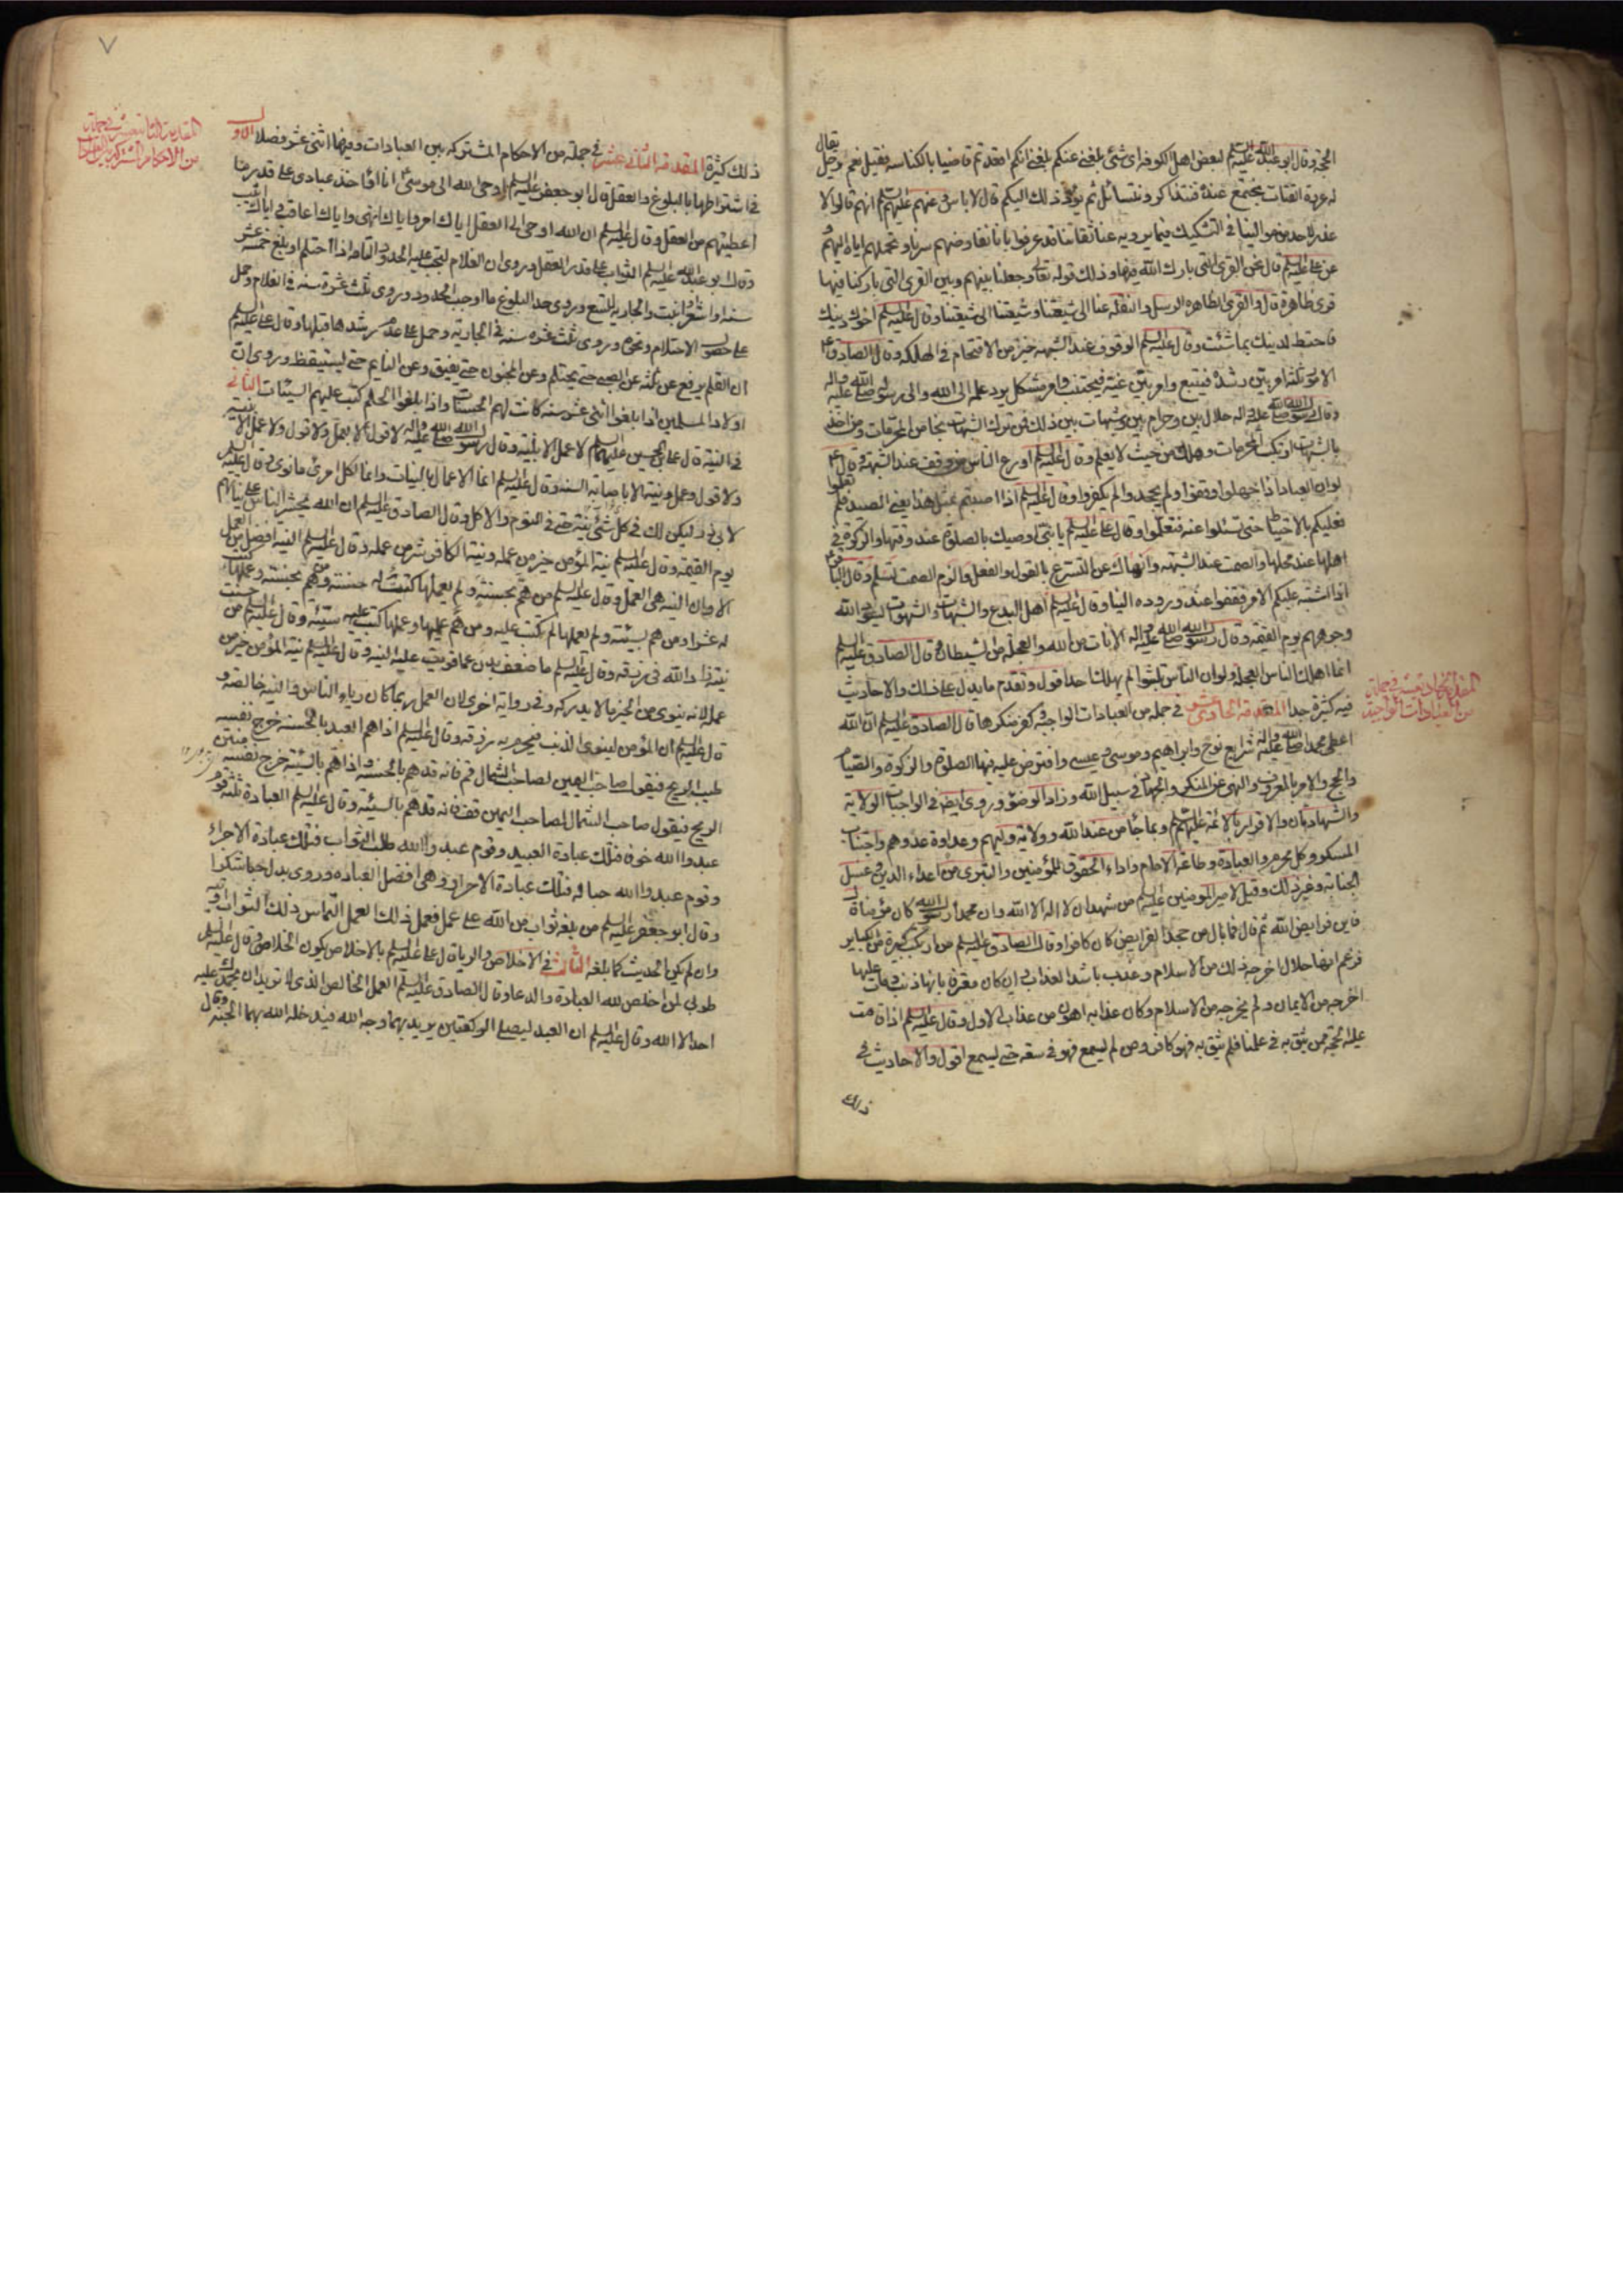 الخ وقال ابو عبد الله عليه السلم لبعض اهل الكوفه اى شئ بلغنى عنكم بلغنى انكم اقعدتم قاضيا بالكناسه فقيل نعم رجل يقال
له عروة القتات يجتمع عنده فنتذاكر ونتسائل ثم يرد ذلك اليكم قال لا باس وعنهم عليهم السلم انهم قالوا لا
عذر لاحد من موالينا فى التشكيك فيما يرويه عنا ثقاتنا قد عرفوا بانا نفاوضهم سرنا ونحملهم اياه اليهم و
عن عليه السلم قال نحن القرى التى بارك الله فيها وذلك قوله تعالى وجعلنا بينهم وبين القرى التى باركنا فيها
قرى ظاهرة قال والقرى الظاهره الرسل والنقله عنا الى شيعتنا وشيعتنا الى شيعتنا وقال عليه السلم اخوك دينك
فاحتط لدينك بما شئت وقال عليه السلم الوقوف عند الشبهه خير من الاقتحام فى الهلكه وقال الصادق ع
الامور ثلثة امر بيّن رشده فيتبع وامر بيّن غيّه فيجتنب وامر مشكل يرد علمه الى الله والى رسوله صلى الله عليه واله
وقال رسول الله صلى الله عليه واله حلال بين وحرام بين وشبهات بين ذلك فمن ترك الشبهات نجا من المحرمات ومن اخذ
بالشبهات ارتكب المحرمات وهلك من حيث لا يعلم وقال عليه السلم اورع الناس من وقف عند الشبهة وقال ع
لو ان العباد اذا جهلوا وقفوا ولم يجحدوا لم يكفروا وقال عليه السلم اذا اصبتم بمثل هذا يعنى الصيد فلم تعلموا
فعليكم بالاحتياط حتى تسئلوا عنه فتعلموا وقال على عليه السلم يا بنى اوصيك بالصلوة عند وقتها والزكوة فى
اهلها عند محلها والصمت عند الشبهه وانهاك عن التسرع بالقول والفعل والزم الصمت تسلم وقال الباقر ع
اذا اشتبه عليكم الامر فقفوا عنده وردوه الينا وقال عليه السلم اهل البدع والشبهات والشهوات يسود الله
وجوههم يوم القيمة وقال رسول الله صلى الله عليه واله الاناة من الله والعجلة من الشيطان وقال الصادق عليه السلم
انما اهلك الناس العجله ولو ان الناس تلبثوا لم يهلك احد اقول وتقدم ما يدل على ذلك والاحاديث
فيه كثيرة جدا المقدمة الحادى عشر فى جمله من العبادات الواجبه وكفر منكرها قال الصادق عليه السلم ان الله
اعطى محمدا صلى الله عليه واله شرايع نوح وابراهيم وموسى وعيسى وافترض عليه فيها الصلوة والزكوة والصيام
والحج والامر بالمعروف والنهى عن المنكر والجهاد فى سبيل الله وزاد الوضوء وروى ايضا فى الواجبات الولاية
والشهادتان والاقرار بالائمة عليهم السلم وبما جاء من عند الله وولاية وليهم وعداوة عدوهم واجتناب
المسكر وكل محرم والعبادة وطاعة الامام واداء الحقوق للمؤمنين والتبرى من اعداء الدين وغسل
الجنابة وغير ذلك وقيل لامير المومنين عليه السلم من شهد ان لا اله الا الله وان محمدا رسول الله كان مؤمنا قال
فاين فرايض الله ثم قال فما بال من جحد الفرايض كان كافرا وقال الصادق عليه السلم من ارتكب كبيرة من الكباير
فزعم انها حلال اخرجه ذلك من الاسلام وعذب باشد العذاب وان كان مقرا بانها ذنب ومات عليها
اخرجه من الايمان ولم يخرجه من الاسلام وكان عذابه اهون من عذاب الاول وقال عليه السلم اذا قامت
عليه الحجة ممن يثق به فى علمنا فلم يثق به فهو كافر ومن لم يسمع فهو فى سعه حتى يسمع اقول والاحاديث فى
ذلك
المقدمة الحادية عشر فى جملة
من العبادات الواجبة
٧
ذلك كثيرة المقدمة الثانى عشر فى جملة من الاحكام المشتركه بين العبادات وفيها اثنى عشر فصلا الاول
فى اشتراطها بالبلوغ والعقل قال ابو جعفر عليه السلم اوحى الله الى موسى انا اؤاخذ عبادى على قدر ما
اعطيتهم من العقل وقال عليه السلم ان الله اوحى الى العقل اياك امر واياك انهى واياك اعاقب واياك اثيب
وقال ابو عبد الله عليه السلم الثواب على قدر العقل وروى ان الغلام تجب عليه الحدود التامه اذا احتلم او بلغ خمسه عشر
سنه او اشعر او انبت والجاريه لتسع وروى حد البلوغ ما اوجب الحدود وروى ثلث عشرة سنه فى الغلام وحمل
على حصول الاحتلام ونحوه وروى ثلث عشره سنه فى الجاريه وحمل على عدم رشدها قبلها وقال على عليه السلم
ان القلم يرفع عن ثلثه عن الصبى حتى يحتلم وعن المجنون حتى يفيق وعن النايم حتى يستيقظ وروى ان
اولاد المسلمين اذا بلغوا اثنى عشر سنه كانت لهم الحسنات واذا بلغوا الحلم كتب عليهم السيئات الثانى
فى النية قال على بن الحسين عليهما السلم لا عمل الا بنية وقال رسول الله صلى الله عليه واله لا قول الا بعمل ولا قول ولا عمل الا بنيه
ولا قول وعمل ونية الا باصابة السنه وقال عليه السلم انما الاعمال بالنيات وانما لكل امرئ ما نوى وقال عليه السلم
لابى ذر ليكن لك فى كل شئ نية حتى فى النوم والاكل وقال الصادق عليه السلم ان الله يحشر الناس على نياتهم
يوم القيمة وقال عليه السلم نية المؤمن خير من عمله ونية الكافر شر من عمله وقال عليه السلم النيه افضل من العمل
الا وان النيه هى العمل وقال عليه السلم من هم بحسنة ولم يعملها كتبت له حسنة ومن هم بحسنة وعملها كتبت
له عشرا ومن هم بسيئة ولم يعملها لم تكتب عليه ومن هم عليها وعملها كتبت عليه سيئة وقال عليه السلم من حسنت
نيته زاد الله فى رزقه وقال عليه السلم ما ضعف بدن عما قويت عليه النيه وقال عليه السلم نية المؤمن خير من
عمله لانه ينوى من الخير ما لا يدركه وفى رواية اخرى لان العمل ربما كان رياء الناس والنيه خالصه و
قال عليه السلم ان المؤمن لينوى الذنب فيحرم به رزقه وقال عليه السلم اذا هم العبد بالحسنه خرج نفسه
طيب الريح فيقول صاحب اليمين لصاحب الشمال قم فانه قد هم بالحسنه واذا هم بالسيئة خرج نفسه منتن
الريح فيقول صاحب الشمال لصاحب اليمين قف فانه قد هم بالسيئه وقال عليه السلم العبادة ثلثة قوم
عبدوا الله خوفا فتلك عبادة العبيد وقوم عبدوا الله طلب الثواب فتلك عبادة الاجراء
وقوم عبدوا الله حبا له فتلك عبادة الاحرار وهى افضل العباده وروى بدل حبا شكرا
وقال ابو جعفر عليه السلم من بلغه ثواب من الله على عمل فعمل ذلك العمل التماس ذلك الثواب اوتيه
وان لم يكن الحديث كما بلغه الثالث فى الاخلاص والريا قال على عليه السلم بالاخلاص يكون الخلاص وقال عليه السلم
طوبى لمن اخلص لله العبادة والدعا وقال الصادق عليه السلم العمل الخالص الذى لا تريد ان يحمدك عليه
احد الا الله وقال عليه السلم ان العبد ليصلى الركعتين يريد بهما وجه الله فيدخله الله بهما الجنه وقال
المقدمة الثانية عشر فى جملة
من الاحكام المشتركة بين العبادات